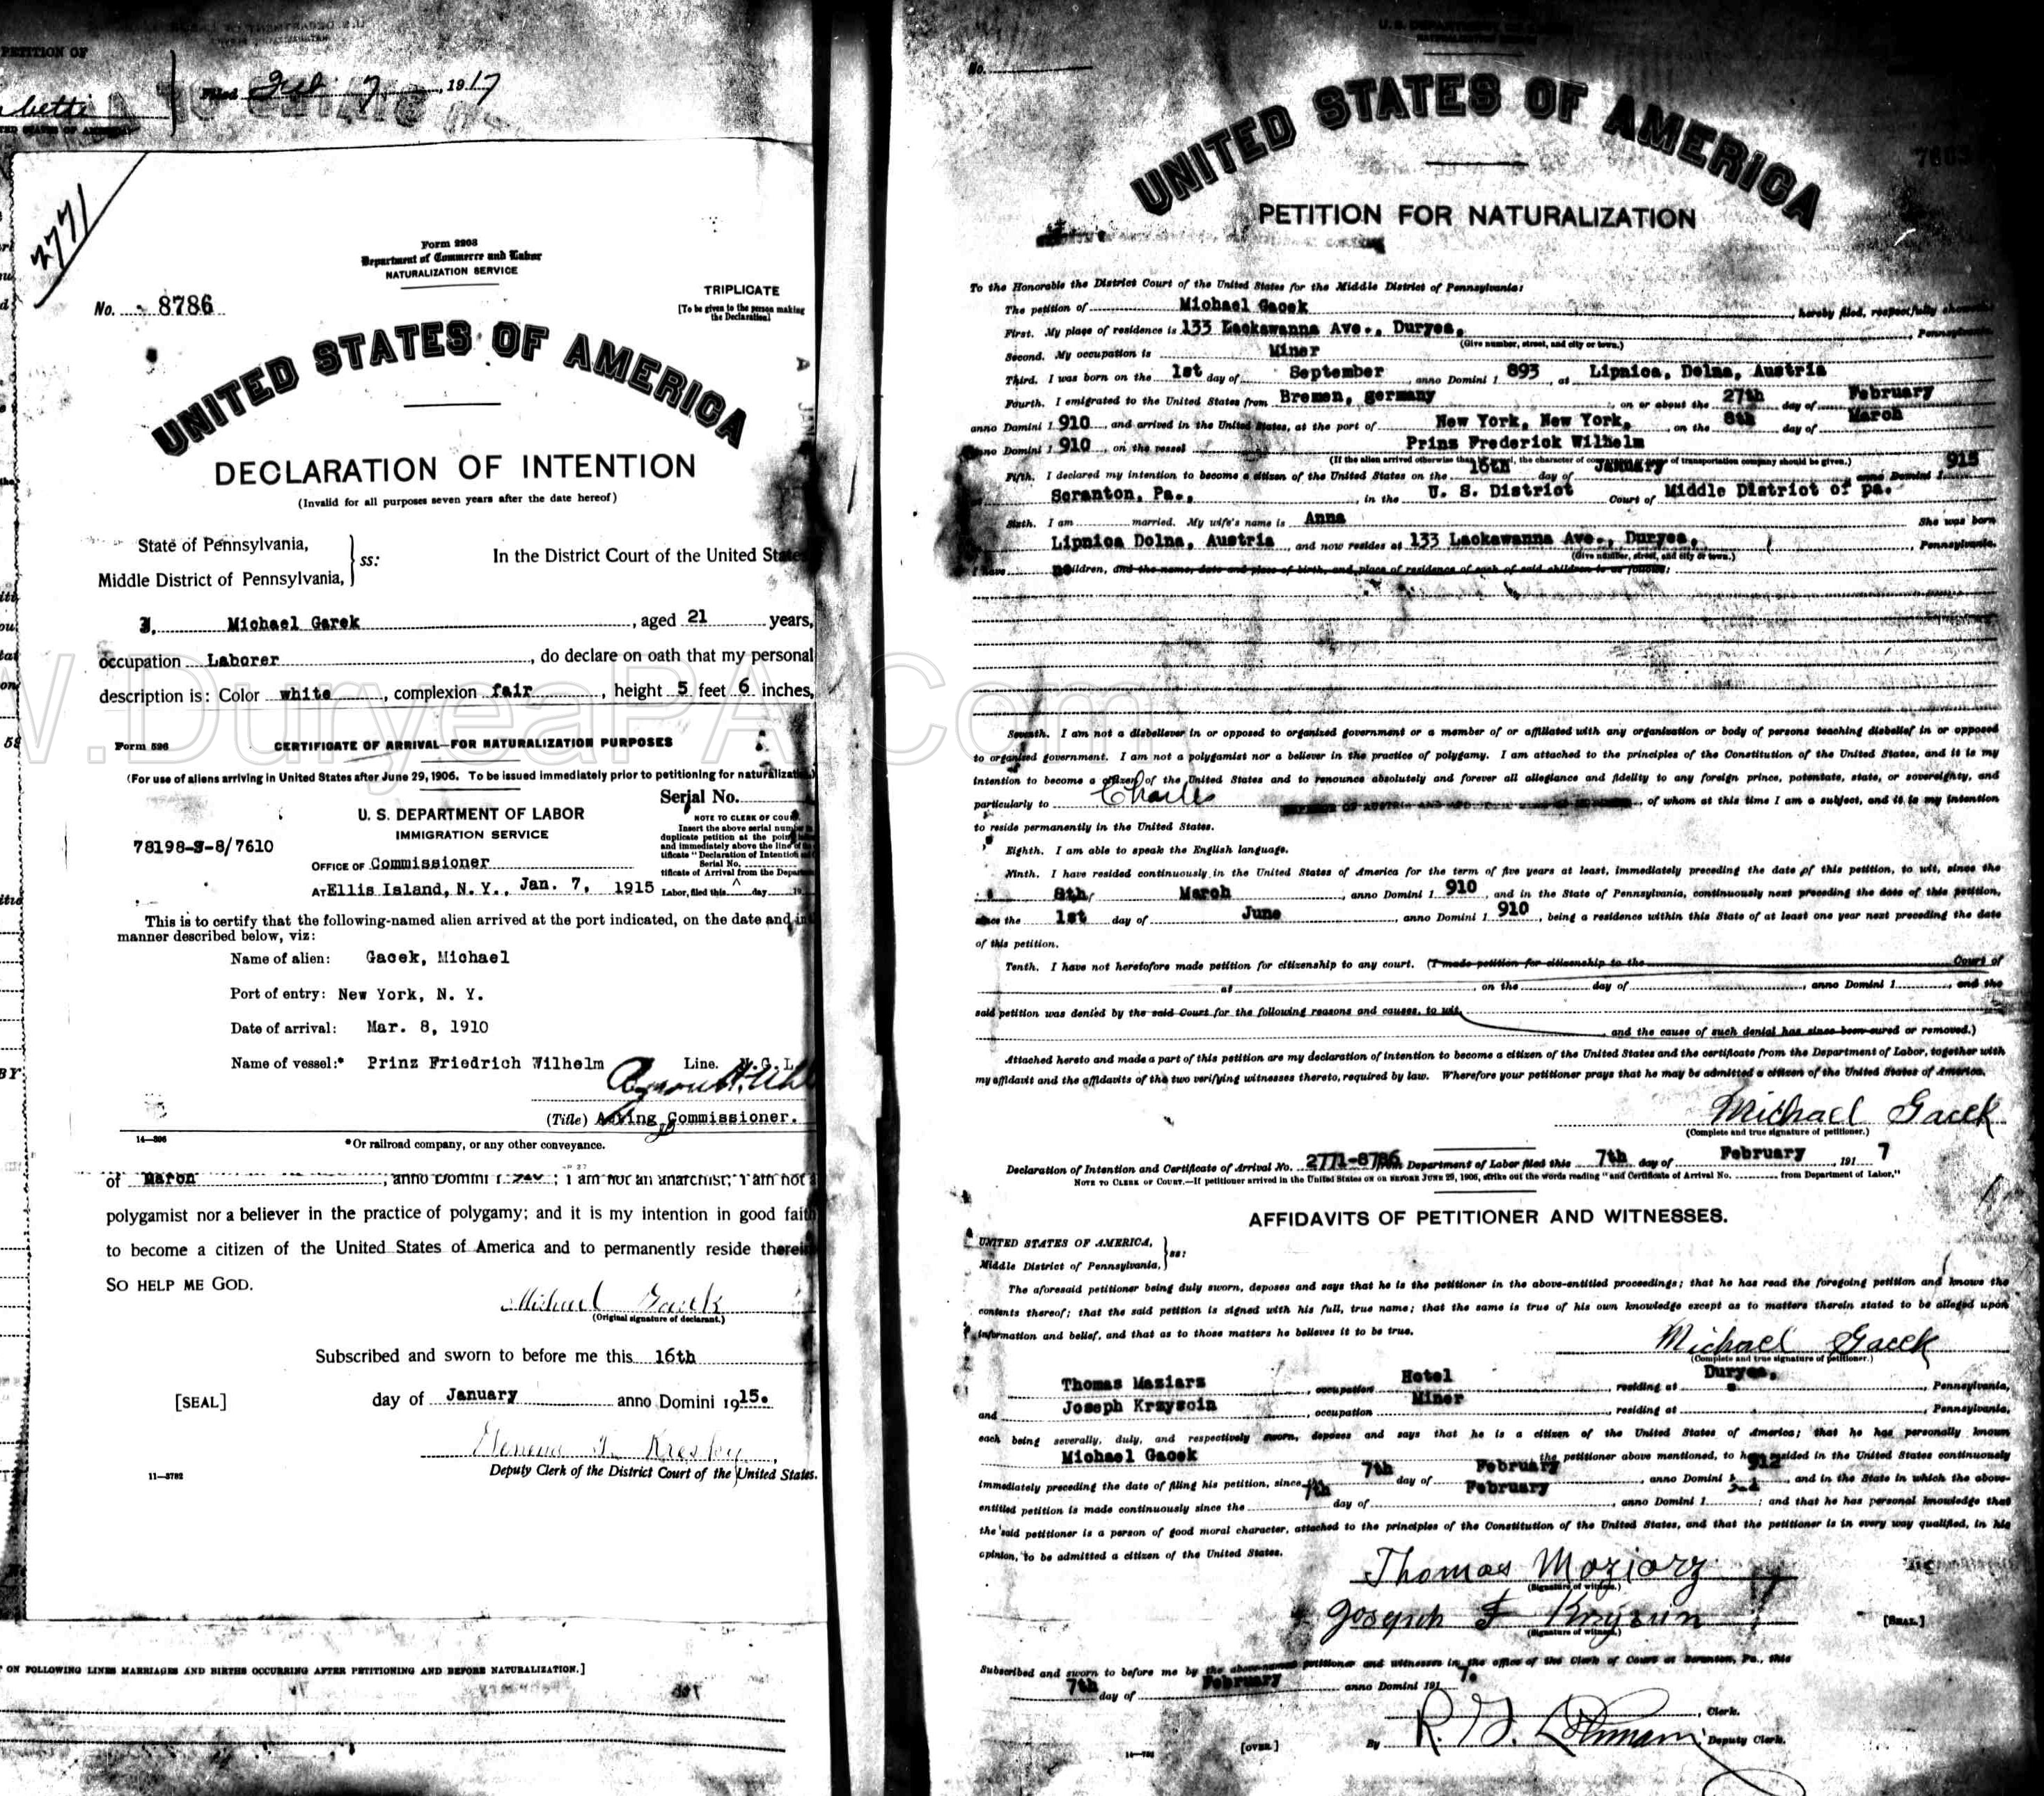 PETITION OF
Filed Feb 7, 1917
2771
Form 2203
Department of Commerce and Labor
NATURALIZATION SERVICE
No. 8786
TRIPLICATE
[To be given to the person making
the Declaration]
UNITED STATES OF AMERICA
DECLARATION OF INTENTION
(Invalid for all purposes seven years after the date hereof)
State of Pennsylvania,
Middle District of Pennsylvania, } ss:
In the District Court of the United States
I, Michael Garek, aged 21 years,
occupation Laborer, do declare on oath that my personal
description is: Color white, complexion fair, height 5 feet 6 inches,
www.DuryeaPA.Com
Form 526
CERTIFICATE OF ARRIVAL—FOR NATURALIZATION PURPOSES
(For use of aliens arriving in United States after June 29, 1906. To be issued immediately prior to petitioning for naturalization)
Serial No.
U. S. DEPARTMENT OF LABOR
IMMIGRATION SERVICE
NOTE TO CLERK OF COURT
Insert the above serial number
duplicate petition at the point
and immediately above the line of
tificate "Declaration of Intention
Serial No.
tificate of Arrival from the Depart
Labor, filed this day 19
78198-3-8/7610
OFFICE OF Commissioner
AT Ellis Island, N. Y., Jan. 7, 1915
This is to certify that the following-named alien arrived at the port indicated, on the date and in
manner described below, viz:
Name of alien: Gacek, Michael
Port of entry: New York, N. Y.
Date of arrival: Mar. 8, 1910
Name of vessel:* Prinz Friedrich Wilhelm Line. N.G.L.
(Title) Acting Commissioner.
14—306
*Or railroad company, or any other conveyance.
of March, anno Domini 1; I am not an anarchist; I am not a
polygamist nor a believer in the practice of polygamy; and it is my intention in good faith
to become a citizen of the United States of America and to permanently reside therein
SO HELP ME GOD.
Michael Gacek
(Original signature of declarant.)
Subscribed and sworn to before me this 16th
[SEAL]
day of January anno Domini 1915.
Deputy Clerk of the District Court of the United States.
11—3792
ON FOLLOWING LINES MARRIAGES AND BIRTHS OCCURRING AFTER PETITIONING AND BEFORE NATURALIZATION.]
No.
UNITED STATES OF AMERICA
PETITION FOR NATURALIZATION
To the Honorable the District Court of the United States for the Middle District of Pennsylvania:
The petition of Michael Gacek, hereby filed, respectfully
First. My place of residence is 133 Lackawanna Ave., Duryea, Pennsylvania
(Give number, street, and city or town.)
Second. My occupation is Miner
Third. I was born on the 1st day of September, anno Domini 1 893, at Lipnica, Dolna, Austria
Fourth. I emigrated to the United States from Bremen, germany on or about the 27th day of February
anno Domini 1 910, and arrived in the United States, at the port of New York, New York, on the 8th day of March
anno Domini 1 910, on the vessel Prinz Frederick Wilhelm
(If the alien arrived otherwise than by vessel, the character of conveyance or name of transportation company should be given.)
Fifth. I declared my intention to become a citizen of the United States on the 16th day of January anno Domini 1 915
Scranton, Pa., in the U. S. District Court of Middle District of pa.
Sixth. I am married. My wife's name is Anna She was born
Lipnica Dolna, Austria, and now resides at 133 Lackawanna Ave., Duryea, Pennsylvania.
(Give number, street, and city or town.)
I have no children, and the name, date and place of birth, and place of residence of each of said children is as follows:
Seventh. I am not a disbeliever in or opposed to organized government or a member of or affiliated with any organization or body of persons teaching disbelief in or opposed
to organized government. I am not a polygamist nor a believer in the practice of polygamy. I am attached to the principles of the Constitution of the United States, and it is my
intention to become a citizen of the United States and to renounce absolutely and forever all allegiance and fidelity to any foreign prince, potentate, state, or sovereignty, and
particularly to Charles of whom at this time I am a subject, and it is my intention
to reside permanently in the United States.
Eighth. I am able to speak the English language.
Ninth. I have resided continuously in the United States of America for the term of five years at least, immediately preceding the date of this petition, to wit, since the
8th March, anno Domini 1 910, and in the State of Pennsylvania, continuously next preceding the date of this petition,
since the 1st day of June, anno Domini 1 910, being a residence within this State of at least one year next preceding the date
of this petition.
Tenth. I have not heretofore made petition for citizenship to any court. (I made petition for citizenship to the Court of
at, on the day of, anno Domini 1, and the
said petition was denied by the said Court for the following reasons and causes, to wit,
and the cause of such denial has since been cured or removed.)
Attached hereto and made a part of this petition are my declaration of intention to become a citizen of the United States and the certificate from the Department of Labor, together with
my affidavit and the affidavits of the two verifying witnesses thereto, required by law. Wherefore your petitioner prays that he may be admitted a citizen of the United States of America.
Michael Gacek
(Complete and true signature of petitioner.)
Declaration of Intention and Certificate of Arrival No. 2771-8786 from Department of Labor filed this 7th day of February 191 7
NOTE TO CLERK OF COURT.—If petitioner arrived in the United States ON OR BEFORE JUNE 29, 1906, strike out the words reading "and Certificate of Arrival No. from Department of Labor."
AFFIDAVITS OF PETITIONER AND WITNESSES.
UNITED STATES OF AMERICA,
Middle District of Pennsylvania, } ss:
The aforesaid petitioner being duly sworn, deposes and says that he is the petitioner in the above-entitled proceedings; that he has read the foregoing petition and knows the
contents thereof; that the said petition is signed with his full, true name; that the same is true of his own knowledge except as to matters therein stated to be alleged upon
information and belief, and that as to those matters he believes it to be true.
Michael Gacek
(Complete and true signature of petitioner.)
Thomas Maziarz, occupation Hotel, residing at Duryea, Pennsylvania,
and Joseph Krzyscin, occupation Miner, residing at, Pennsylvania,
each being severally, duly, and respectively sworn, deposes and says that he is a citizen of the United States of America; that he has personally known
Michael Gacek the petitioner above mentioned, to have resided in the United States continuously
immediately preceding the date of filing his petition, since the 7th day of February, anno Domini 1 912, and in the State in which the above-
entitled petition is made continuously since the 7th day of February, anno Domini 1; and that he has personal knowledge that
the said petitioner is a person of good moral character, attached to the principles of the Constitution of the United States, and that the petitioner is in every way qualified, in his
opinion, to be admitted a citizen of the United States.
Thomas Maziarz
(Signature of witness.)
Joseph F
(Signature of witness.)
[SEAL]
Subscribed and sworn to before me by the above-named petitioner and witnesses in the office of the Clerk of Court at Scranton, Pa., this
7th day of February anno Domini 191 7.
, Clerk.
14—
[OVER]
By R. G., Deputy Clerk.